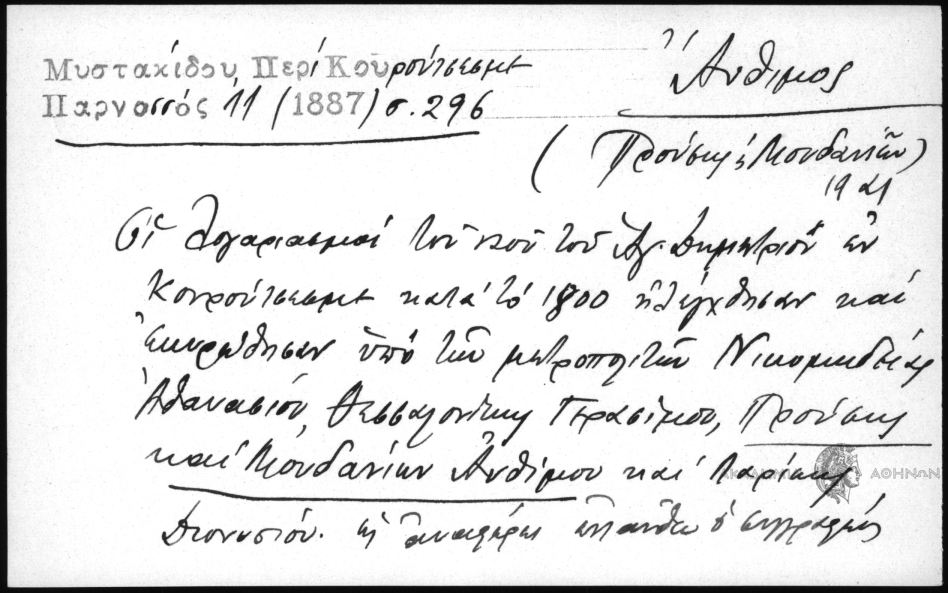 Μυστακίδου, Περί Κουρούτσεσμε
Παρνασσός 11 (1887) σ. 296
Ἄνθιμος
(Προύσης & Μουδανιῶν)
1921
Οἱ λογαριασμοί τοῦ ναοῦ τοῦ Ἁγ. Δημητρίου ἐν
Κουρούτσεσμε κατά τό 1800 ἠλέγχθησαν καί
ἐκυρώθησαν ὑπό τῶν μητροπολιτῶν Νικομηδείας
Ἀθανασίου, Θεσσαλονίκης Γερασίμου, Προύσης
καί Μουδανίων Ἀνθίμου καί Λαρίσης
Διονυσίου. ὡς ἀναφέρει ὁ συγγραφεύς
ΑΚΑΔΗΜΙΑ ΑΘΗΝΩΝ